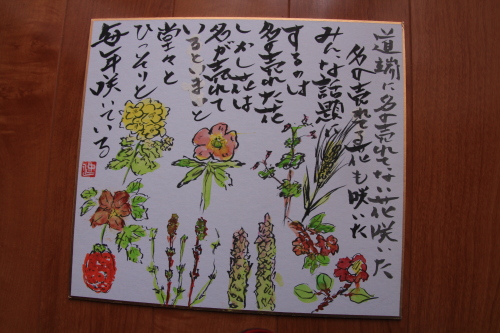 道端に名の売れてない花咲いた
名の売れてる花も咲いた
みんな話題に
するのは
名の売れた花
しかし花は
名が売れて
いるといまいと
堂々と
ひっそりと
毎年咲いている